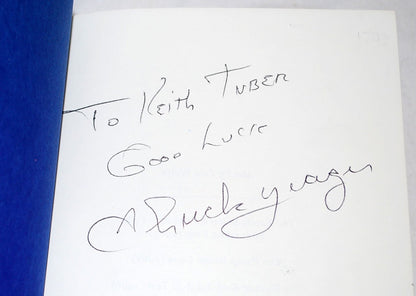 To Keith Tuber
Good Luck
Chuck Yeager